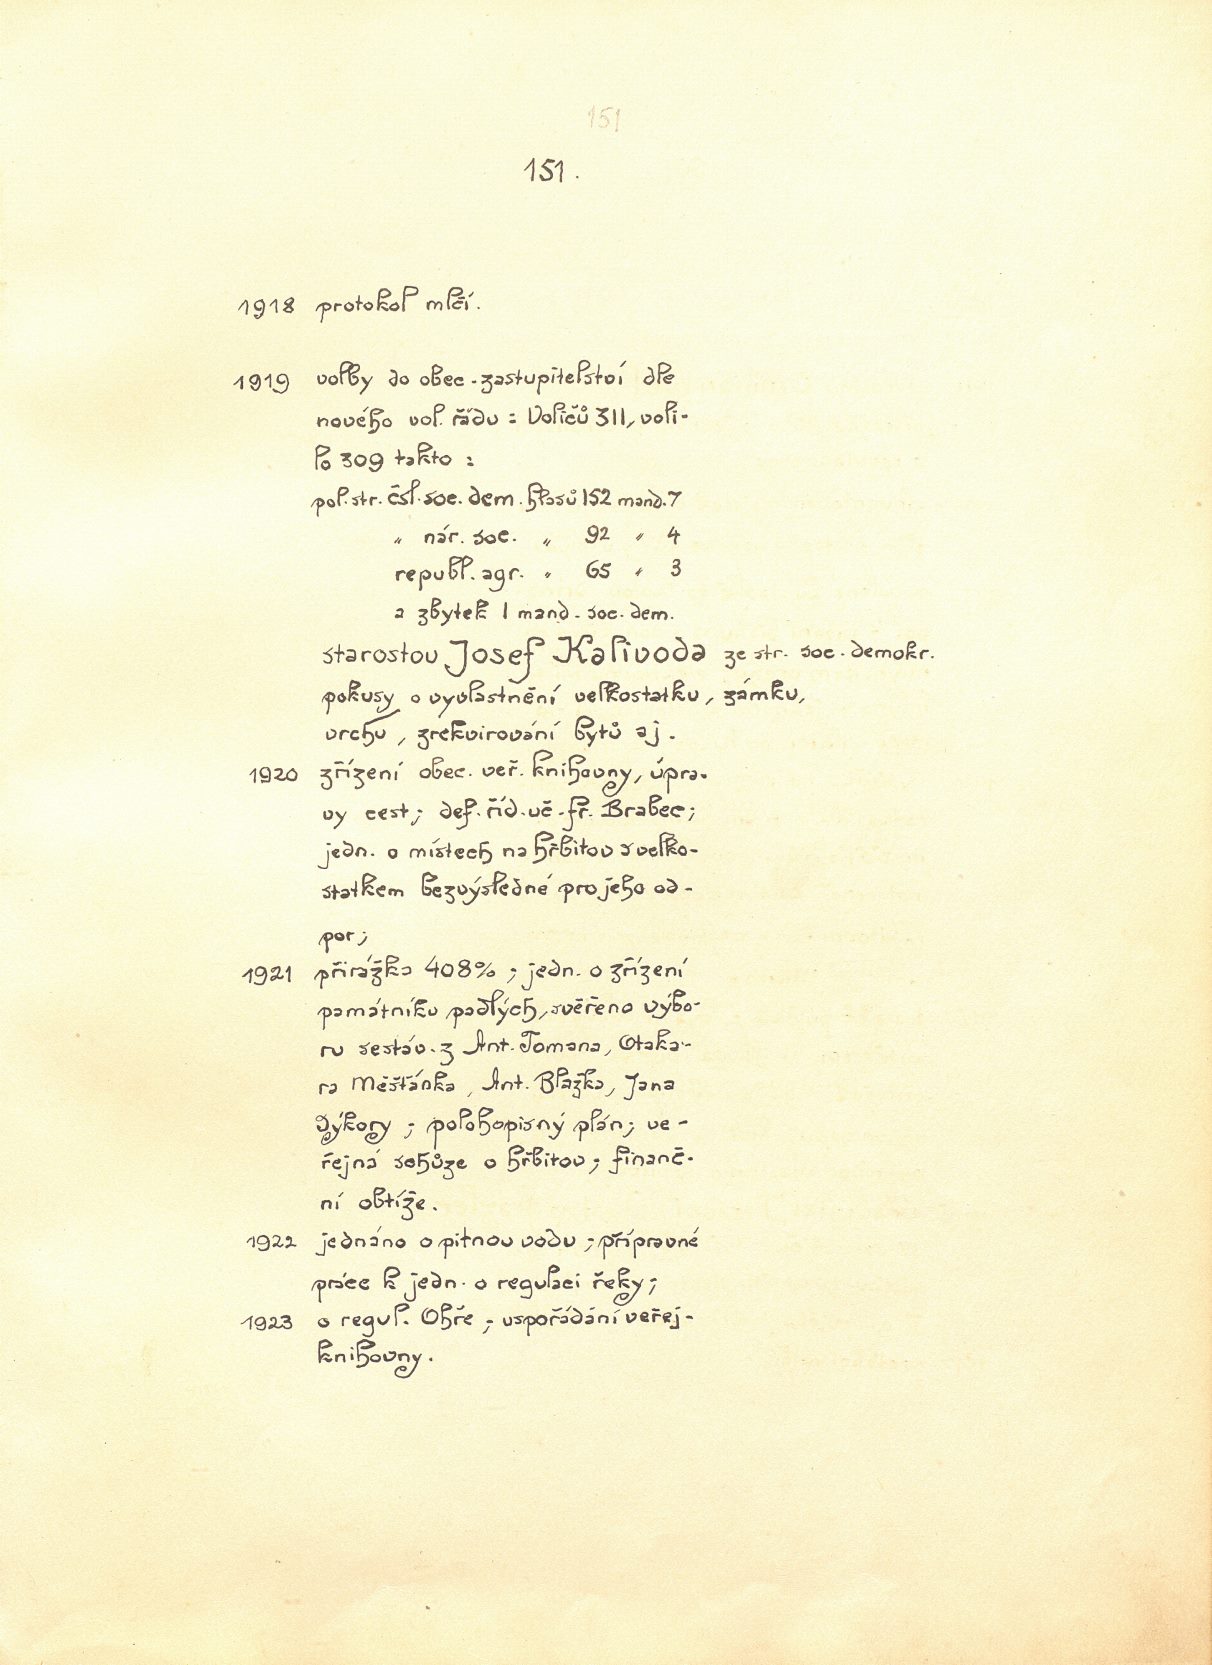 151
151.
1918 protokol mlčí.
1919 volby do obec. zastupitelství dle
nového vol. řádu : Voličů 311, voli-
lo 309 takto :
pol. str. čsl. soc. dem. hlasů 152 mand. 7
„ nár. soc. „ 92 „ 4
republ. agr. „ 65 „ 3
a zbytek 1 mand. soc. dem.
starostou Josef Kalivoda ze str. soc. demokr.
pokusy o vyvlastnění velkostatku, zámku,
vrchu, zrekvirování bytů aj.
1920 zřízení obec. veř. knihovny, úpra-
vy cest; def. říd. uč. fr. Brabec;
jedn. o místech na hřbitov s velko-
statkem bezvýsledné pro jeho od-
por;
1921 přirážka 408% ; jedn. o zřízení
památníku padlých, svěřeno výbo-
ru sestáv. z Ant. Tomana, Otaka-
ra Měšťánka, Ant. Blažka, Jana
Dýkory ; polohopisný plán; ve-
řejná schůze o hřbitov ; finanč-
ní obtíže.
1922 jednáno o pitnou vodu ; přípravné
práce k jedn. o regulaci řeky ;
1923 o regul. Ohře ; uspořádání veřej-
knihovny.